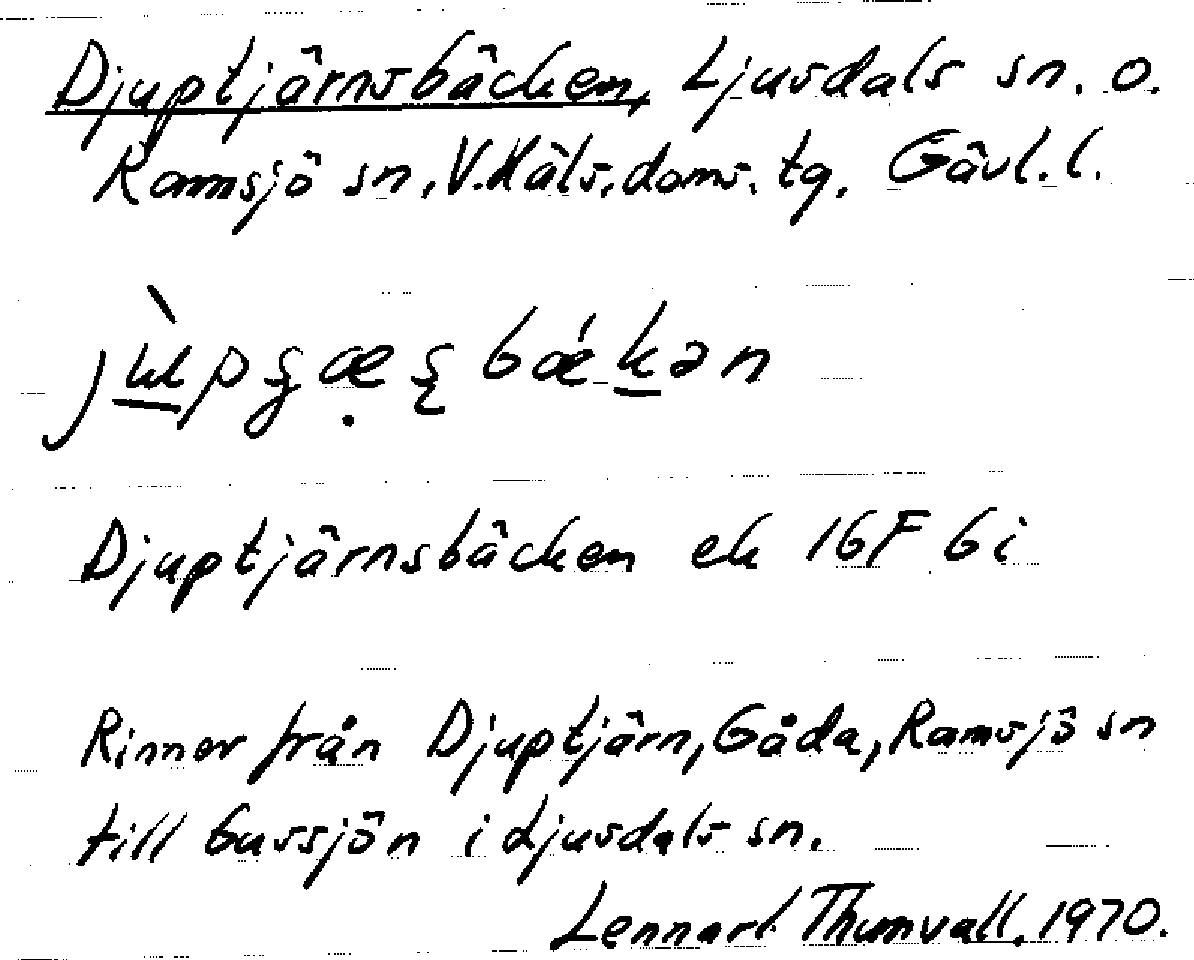 Djuptjärnsbäcken, Ljusdals sn. o.
Ramsjö sn, V. Häls. doms. tg. Gävl. l.
Djuptjärnsbäcken ek 16F 6i
Rinner från Djuptjärn, Gåda, Ramsjö sn
till Gussjön i Ljusdals sn.
Lennart Thunvall. 1970.